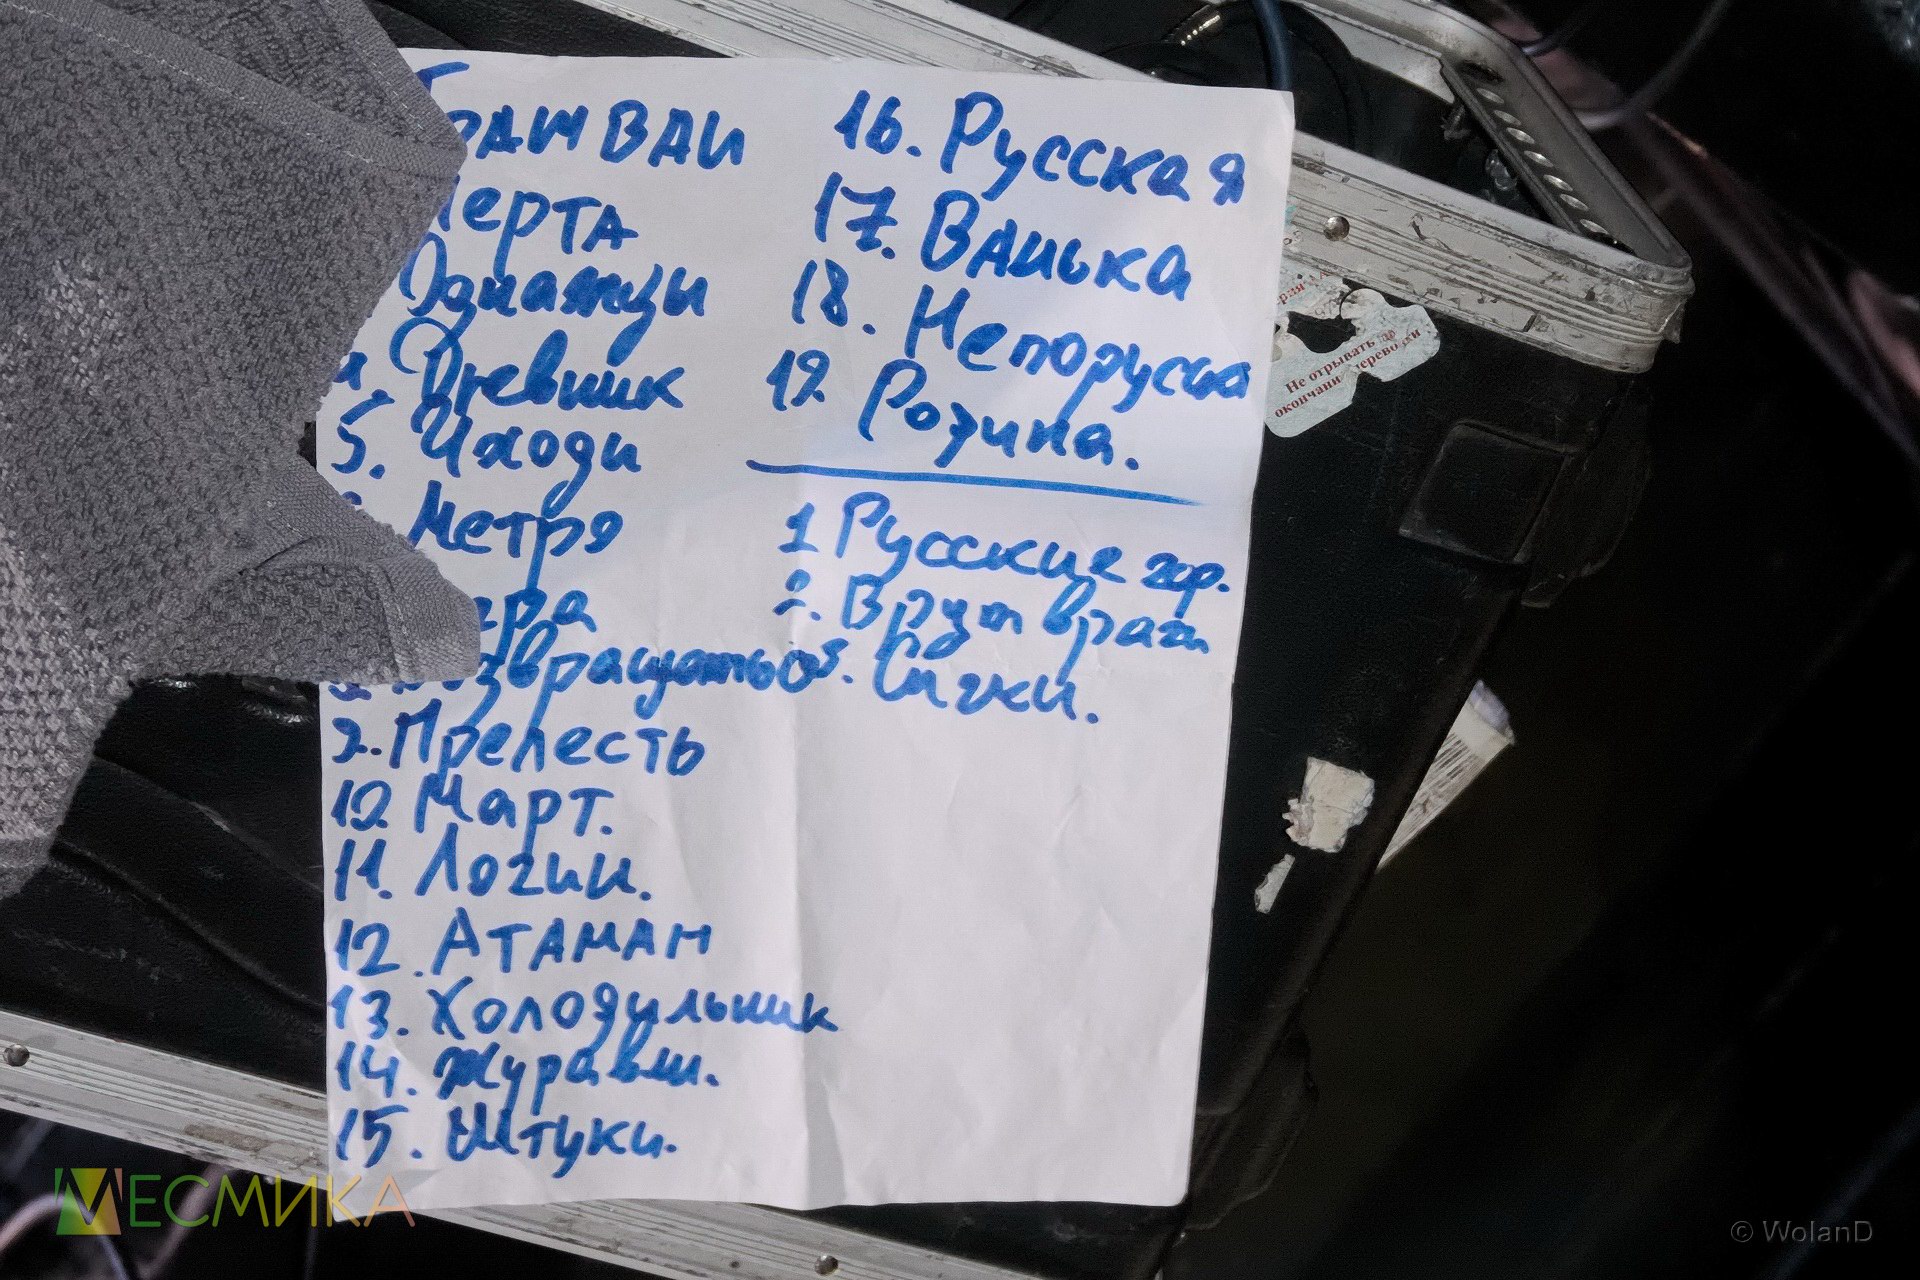 Трамваи
Черта
Однажды
4. Дневник
5. Уходи
Метро
Возвращаться
9. Прелесть
10. Март.
11. Логин.
12. Атаман
13. Холодильник
14. Журавли.
15. Штуки.
16. Русская
17. Ванька
18. Непоруска
19. Родина.
1 Русские гор.
2. Вруг враги
Спички.
Не отрывать до
окончани перевозки
МЕСМИКА
© WolanD